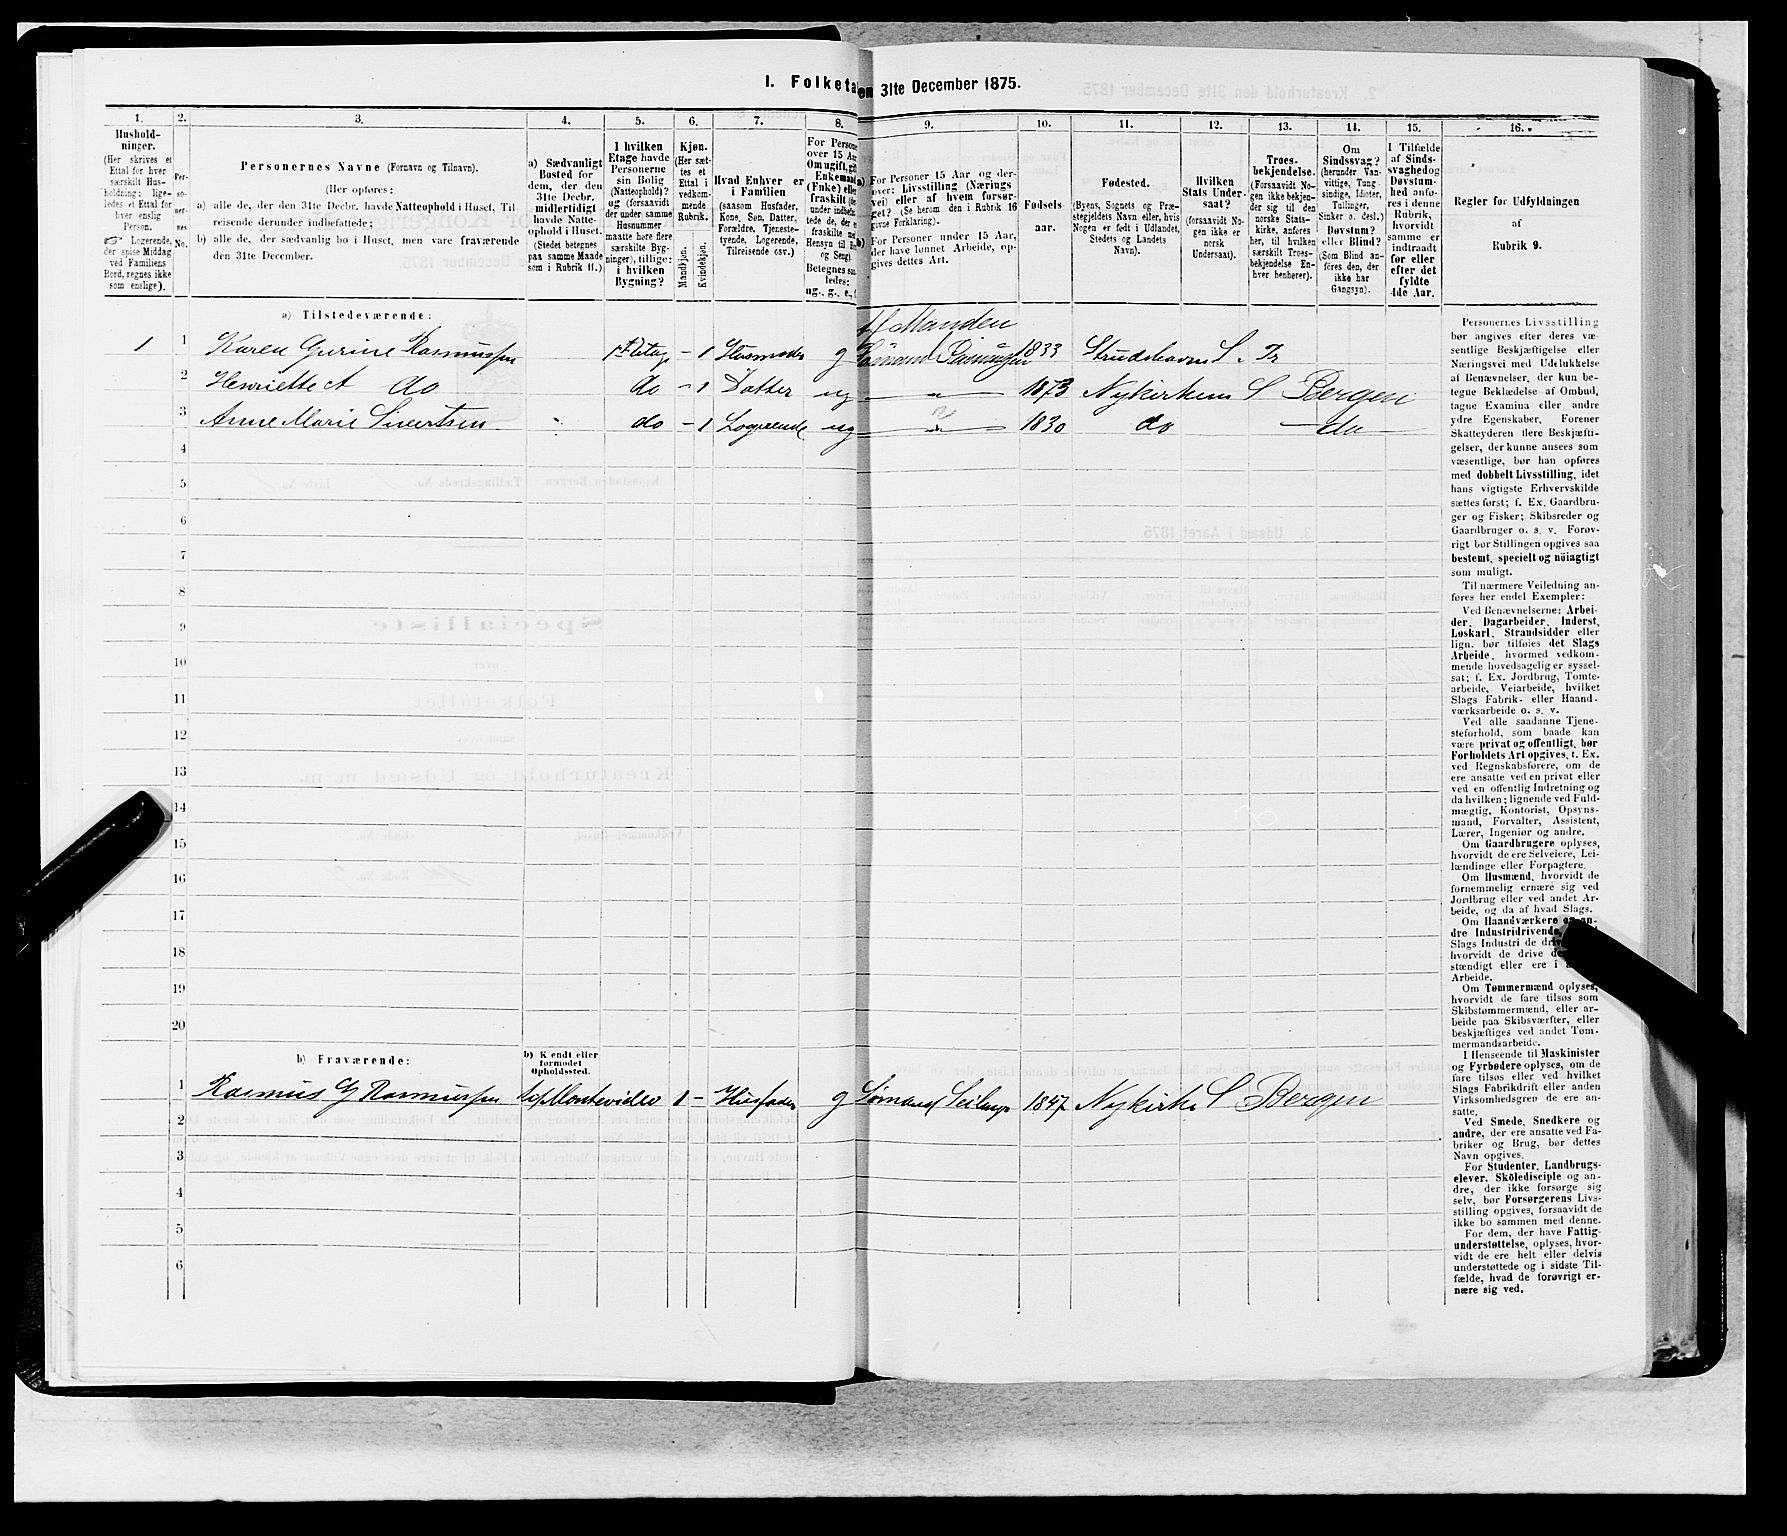 I. Folketa en 31te December 1875.
1. 2. 3. 4. 5. 6. 7. 8. 9. 10. 11. 12. 13. 14. 15. 16.
Hushold-
ninger.
(Her skrives et
Ettal for hver
særskilt Hus-
holdning; lige-
ledes et Ettal for
hver enslig
Person.
Logerende,
der spise Middag
ved Familiens
Bord, regnes ikke
som enslige).
Per-
so-
ner-
nes
No.
Personernes Navne (Fornavn og Tilnavn).
(Her opføres:
a) alle de, der den 31te Decbr. havde Natteophold i Huset, Til
reisende derunder indbefattede;
b) alle de, der sædvanlig bo i Huset, men vare fraværende
den 31te December.
a) Sædvanligt
Bosted for
dem, der den
31te Decbr.
midlertidigt
havde Natte-
ophold i Huset.
(Stedet betegnes
paa samme Maade
som i Rubrik 11.)
I hvilken
Etage havde
Personerne
sin Bolig
(Natteophold)?
og (forsaavidt
der under samme
Husnummer
maatte høre flere
særskilte Byg-
ninger), tillige:
i hvilken
Bygning?
Kjøn.
(Her sæt-
tes et
Ettal i
vedkom-
mende
Rubrik.
Mandkjøn.
Kvindekjøn.
Hvad Enhver er
i Familien
(saasom Husfader,
Kone, Søn, Datter,
Forældre, Tjeneste-
tyende, Logerende,
Tilreisende osv.)
For Persone
over 15 Aar
Om ugift, gift
Enkemand
(Enke) eller
fraskilt (de
under indbefat-
tede de, der e
fraskilte med
Hensyn til Bo
og Seng).
Betegnes saa
ledes:
ug., g., e., f
a) For Personer 15 Aar og der-
over: Livsstilling (Nærings
vei) eller af hvem forsør-
get? (Se herom den i Rubrik 16
givne Forklaring).
b) For Personer under 15 Aar,
der have lønnet Arbeide, op-
gives dettes Art.
Fødsels
aar.
Fødested.
(Byens, Sognets og Præ-
stegjeldets Navn eller, hvis
Nogen er født i Udlandet,
Stedets og Landets
Navn).
Hvilken
Stats Under-
saat?
(forsaavidt No-
gen ikke er
norsk
Undersaat).
Troes-
bekjendelse.
(Forsaavidt No-
gen ikke bekjen-
der sig til den
norske Stats-
kirke, anføres
her, til hvilken
særskilt Troes-
bekjendelse En-
hver henhører).
Om
Sindssvag?
(herunder Van-
vittige, Tung-
sindige, Idioter,
Tullinger,
Sinker o. desl.)
Døvstum?
eller Blind?
(Som Blind an-
føres den, der
ikke har
Gangsyn).
I Tilfælde
af Sinds-
svaghed og
Døvstum-
hed anfø-
res i denne
Rubrik,
hvorvidt
samme er
indtraadt
før eller
efter det
fyldte
4de Aar.
Regler for Udfyldningen
af
Rubrik 9.
a) Tilstedeværende:
af Manden
1 1 Karen Gurine Rasmussen 1ste Etage – 1 Husmoder g Sømand 1833
2 Henriette A do do – 1 Datter ug " 1873 Nykirkens S Bergen
3 Anne Marie Sivertsen do – 1 Logerende ug 1830 do do
4
5
6
7
8
9
10
11
12
13
14
15
16
17
18
19
20
b) Fraværende:
b) Kendt eller
formodet
Opholdssted.
1 Rasmus G Rasmussen Montevideo 1 – Husfader g Sømand 1847 Nykirke S Bergen
2
3
4
5
6
Personernes Livsstilling
bør angives efter deres væ-
sentlige Beskjæftigelse eller
Næringsvei med Udelukkelse
af Benævnelser, der kun be-
tegne Beklædelse af Ombud,
tagne Examina eller andre
ydre Egenskaber. Forener
Skatteyderen flere Beskjæfti-
gelser, der kunne ansees som
væsentlige, bør han opføres
med dobbelt Livsstilling, idet
hans vigtigste Erhvervskilde
sættes først; f. Ex. Gaardbru-
ger og Fisker; Skibsreder og
Gaardbruger o. s. v. Forøv-
rigt bør Stillingen opgives saa
bestemt, specielt og nöiagtigt
som muligt.
Til nærmere Veiledning an-
føres her endel Exempler:
Ved Benævnelserne: Arbei-
der, Dagarbeider, Inderst,
Løskarl, Strandsidder eller
lign. bør tilføies det Slags
Arbeide, hvormed vedkom-
mende hovedsagelig er syssel-
sat; f. Ex. Jordbrug, Tomte-
arbeide, Veiarbeide, hvilket
Slags Fabrik- eller Haand-
værksarbeide o. s. v.
Ved alle saadanne Tjene-
steforhold, som baade kan
være privat og offentligt, bør
Forholdets Art opgives, t. Ex.
ved Regnskabsførere, om de
ere ansatte ved en privat eller
ved en offentlig Indretning og
da hvilken; lignende ved Fuld-
mægtig, Kontorist, Opsyns-
mand, Forvalter, Assistent,
Lærer, Ingeniør og andre.
Om Gaardbrugere oplyses,
hvorvidt de ere Selveiere, Lei-
lændinge eller Forpagtere.
Om Husmænd, hvorvidt de
fornemmelig ernære sig ved
Jordbrug eller ved andet Ar-
beide, og da af hvad Slags.
Om Haandværkere og an-
dre Industridrivende
Slags Industri de
hvorvidt de drive
stændigt eller ere i
Arbeide.
Om Tømmermænd oplyses,
hvorvidt de fare tilsøs som
Skibstømmermænd, eller ar-
beide paa Skibsværfter, eller
beskjæftiges ved andet Tøm-
mermandsarbeide.
I Henseende til Maskinister
og Fyrbødere oplyses, om de
fare tilsøs eller ved hvilket
Slags Fabrikdrift eller anden
Virksomhedsgren de ere an-
satte.
Ved Smede, Snedkere og
andre, der ere ansatte ved Fa-
briker og Brug, bør dettes
Navn opgives.
For Studenter, Landbrugs-
elever, Skoledisciple og an-
dre, der ikke forsørge sig
selv, bør Forsørgerens Livs-
stilling opgives, forsaavidt de
ikke bo sammen med denne.
For dem, der have Fattig-
understøttelse, oplyses, hvor-
vidt de ere helt eller delvis
understøttede og i sidste Til-
fælde, hvad de forøvrigt er-
nære sig ved.